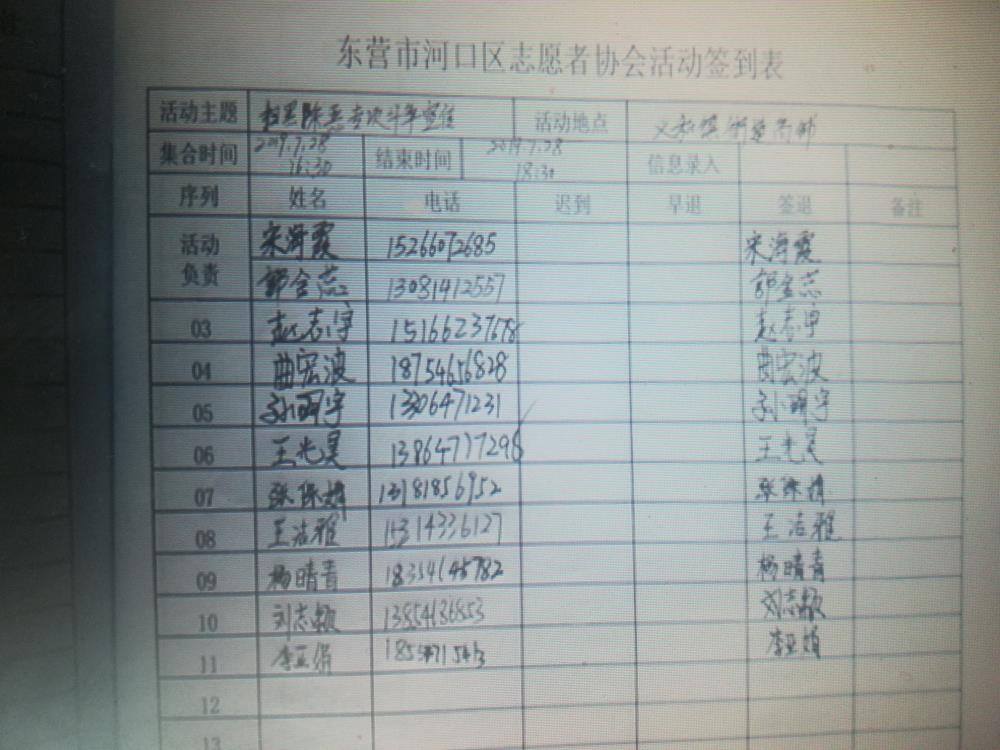 东营市河口区志愿者协会活动签到表
活动主题 扫黑除恶专项斗争宣传 活动地点 义和镇
集合时间 2019.7.28 16:30 结束时间 2019.7.28 18:30 信息录入
序列 姓名 电话 迟到 早退 签退 备注
活动负责 宋海霞 15266072685 宋海霞
郭金蕊 13081412557 郭金蕊
03 赵志宇 15166237678 赵志宇
04 曲宏波 18754656828 曲宏波
05 孙明宇 13306471231 孙明宇
06 王光昊 13864777296 王光昊
07 张 13181856952 张
08 王洁雅 15314336127 王洁雅
09 杨晴青 杨晴青
10 刘志颖 13854636853 刘志颖
11 李亚娟 李亚娟
12
13